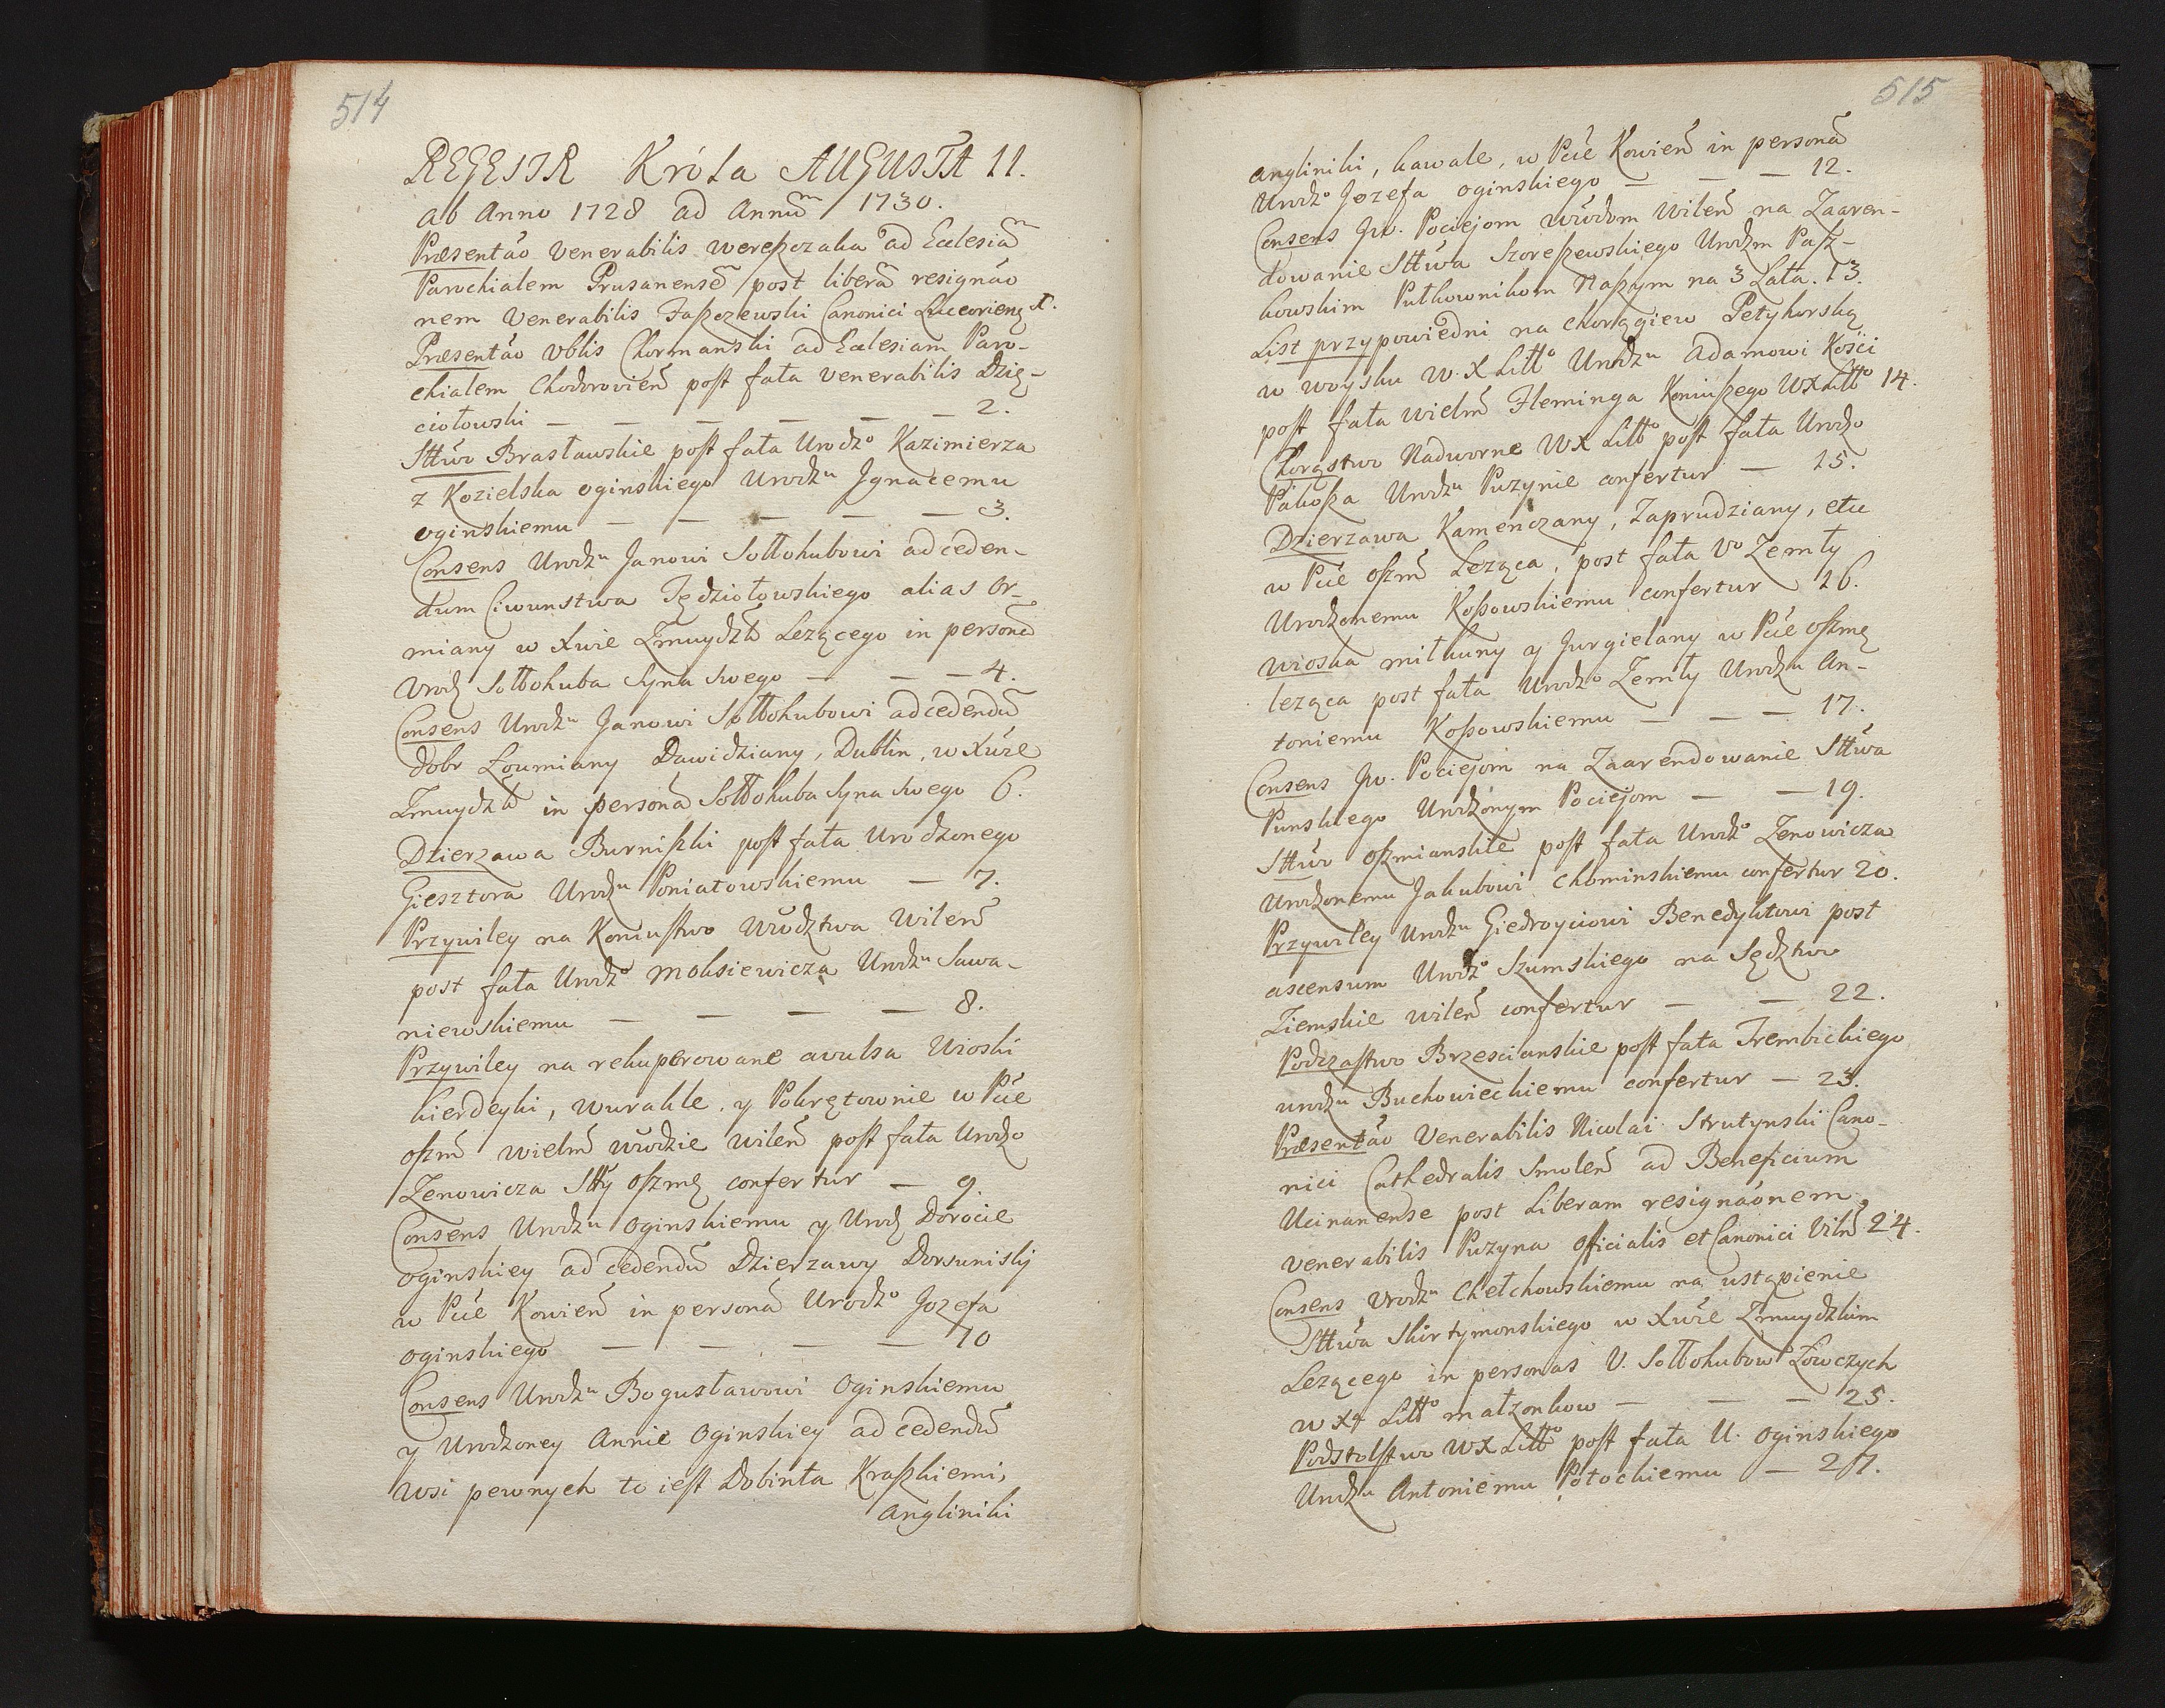 514
REGESTR Króla AUGUSTA II.
ab Anno 1728 ad Annū 1730.
Præsentao Venerabilis Wereszczaka ad Ecclesiam
Parochialem Prusanensē post liberā resignao
nem Venerabilis Faszczewski Canonici Luceorienę
Præsentao Vblis Chormanski ad Ecclesiam Paro-
chialem Chodorovień post fata Venerabilis Dzię-
ciołowski — — — — — 2.
Sttwo Brasławskie post fata Urodzo Kazimierza
z Kozielska Oginskiego Urodzu Jgnacemu
Oginskiemu — — — — — 3.
Consens Urodzu Janowi Sołłohubowi ad ceden-
dum Ciwunstwa Tędziołowskiego alias Or-
miany w Xwie Zmuydzk Lezącego in personā
Urodz Sołłohuba Syna swego — — — 4.
Consens Urodzu Janowi Sołłohubowi ad cedendū
Dobr Łoumiany Dawidziany, Dublin, w Xwie
Zmuydzk in personā Sołłohuba Syna swego 6.
Dzierzawa Burniszki post fata Urodzonego
Giesztora Urodzu Poniatowskiemu — 7.
Przywiley na Koniustwo Wwdztwa Wileń
post fata Urodzo Moksiewicza Urodzu Sawa-
niewskiemu — — — — 8.
Przywiley na rekuperowane avulsa Wioski
kierdeyki, wurakle, y Pokrętownie w Pcie
oszm wielm wwdzie wileń post fata Urodzo
Zenowicza Stty Oszmę confertur — 9.
Consens Urodzu Oginskiemu y Urodz Dorocie
Oginskiey ad cedendū Dzierzawy Dorsuniskij
w Pcie Kowień in personā Urodzo Jozefa
Oginskiego — — — — 10
Consens Urodzu Bogusławowi Oginskiemu
y Urodzoney Annie Oginskiey ad cedendū
wsi pewnych to iest Dobinta, Kraszkiemi,
Anglinihi
515
anglinihi, kawale, w Pcie Kowień in personā
Urodzo Jozefa Oginskiego — — — 12.
Consens Jw. Pociejom wwdom Wileń na Zaaren-
dowanie Sttwa Szereszewskiego Urodzm Pasz-
kowskim Pułkownikom Naszym na 3 Lata. 13.
List przypowiedni na chorągiew Petyhorską
w woysku W. X Litto Urodzu Adamowi Kości
post fata wielm Fleminga Koniuszego WX Litto 14.
Chorąstwo Nadworne WX Litto post fata Urodzo
Pakosza Urodzu Puzynie confertur — 15.
Dzierzawa Kamenczany, Zaprudziany, etc
w Pcie Oszm Leząca, post fata Vo Zemły
Urodzonemu Koszowskiemu confertur 16.
Wioska milkuny y Jurgielany w Pcie Oszmę
leząca post fata Urodzo Zemły Urodzu An-
toniemu Koszowskiemu — — — 17.
Consens Jw. Pociejom na Zaarendowanie Sttwa
Punskiego Urodzonym Pociejom — — 19.
Sttwo Oszmianskie post fata Urodzo Zenowicza
Urodzonemu Jakubowi Chominskiemu confertur 20.
Przywiley Urodzu Giedroyciowi Benedyktowi post
ascensum Urodzo Szumskiego na Sędztwo
Ziemskie wileń confertur — — 22.
Podczastwo Brzescianskie post fata Trembickiego
urodzu Buchowieckiemu confertur — 23.
Præsentao Venerabilis Nicolai Strutynski Cano-
nici Cathedralis Smoleń ad Beneficium
Ucinanense post Liberam resignaonem
venerabilis Puzyna Officialis et Canonici Vilń 24.
Consens Urodzu Chełchowskiemu na ustąpienie
Sttwa Skirtymonskiego w Xwie Zmuydzkim
Lezącego in personas V. Sołłohubow Łowczych
w Xa Litto małzonkow — — — 25.
Podstolstwo WX Litto post fata U. Oginskiego
Urodzu Antoniemu Potockiemu — 27.